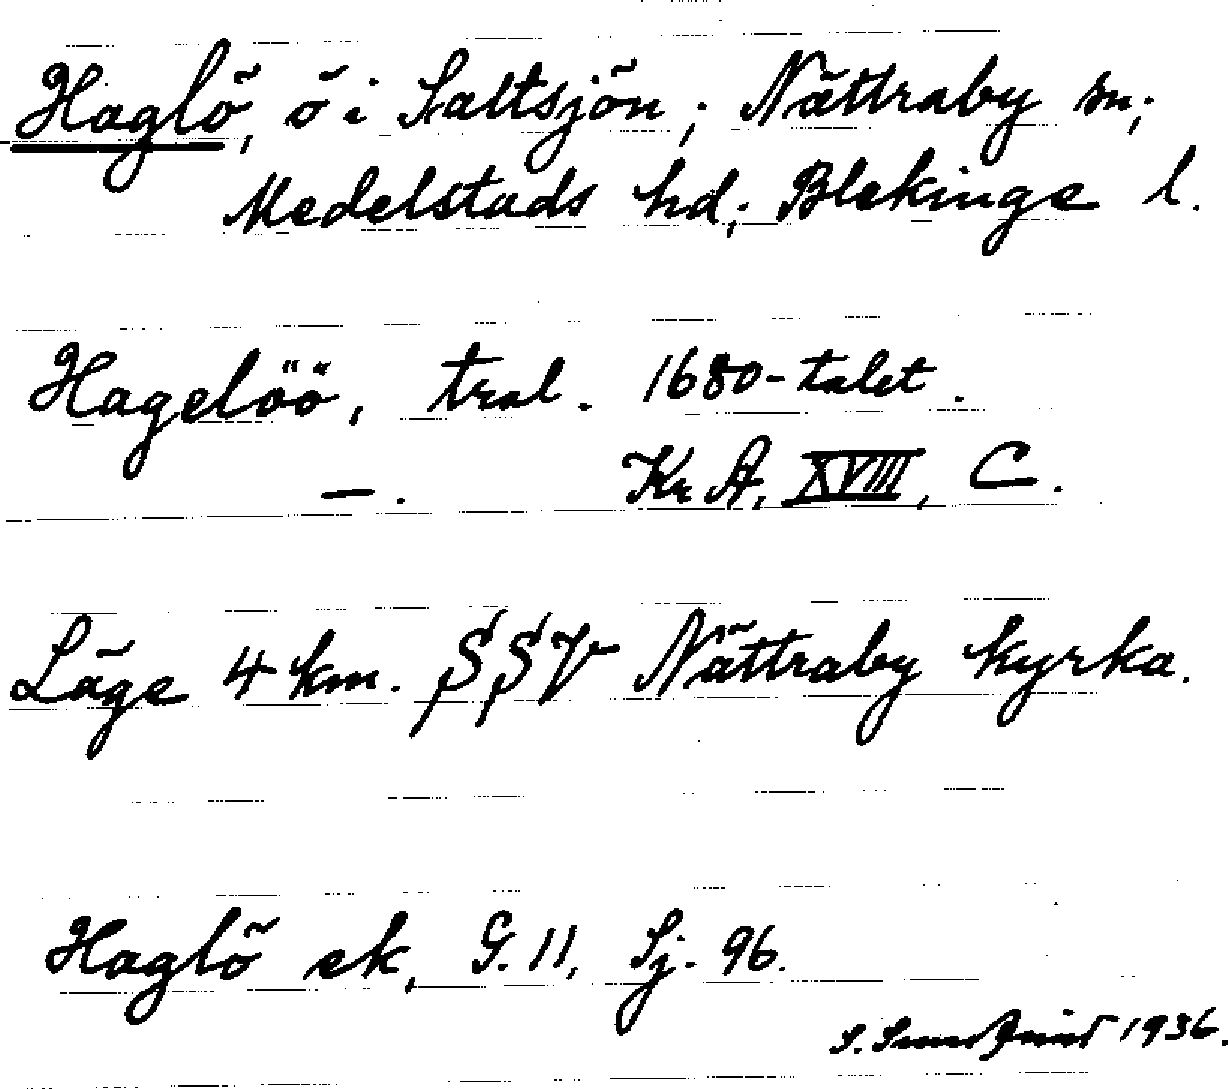 Haglö, ö i Saltsjön; Nättraby sn;
Medelstads hd; Blekinge l.
Hagelöö, tral. 1680-talet.
—. Kr A, XVIII, C.
Läge 4 km. SSV Nättraby kyrka.
Haglö ek, G. 11, Sj. 96.
S. 1936.